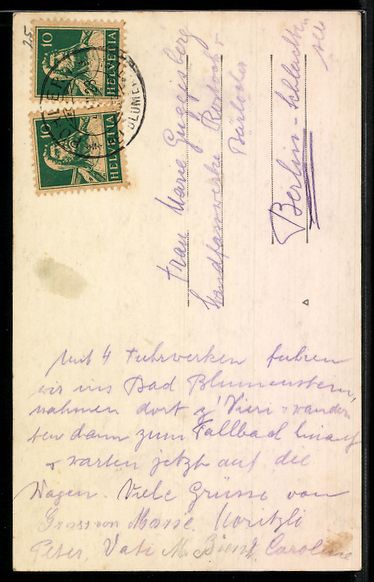 25
10
HELVETIA
10
HELVETIA
BLUMEN
Frau Marie Guggisberg
Berlin-Schlachten
see
Mit 4 Fuhrwerken fuhren
wir ins Bad Blumenstein,
nahmen dort z'Vieri & wander
ten dann zum Fallbach hinauf
& warten jetzt auf die
Wagen. Viele Grüsse von
Gross von Moritzli
Peter, Vati M. Caroline